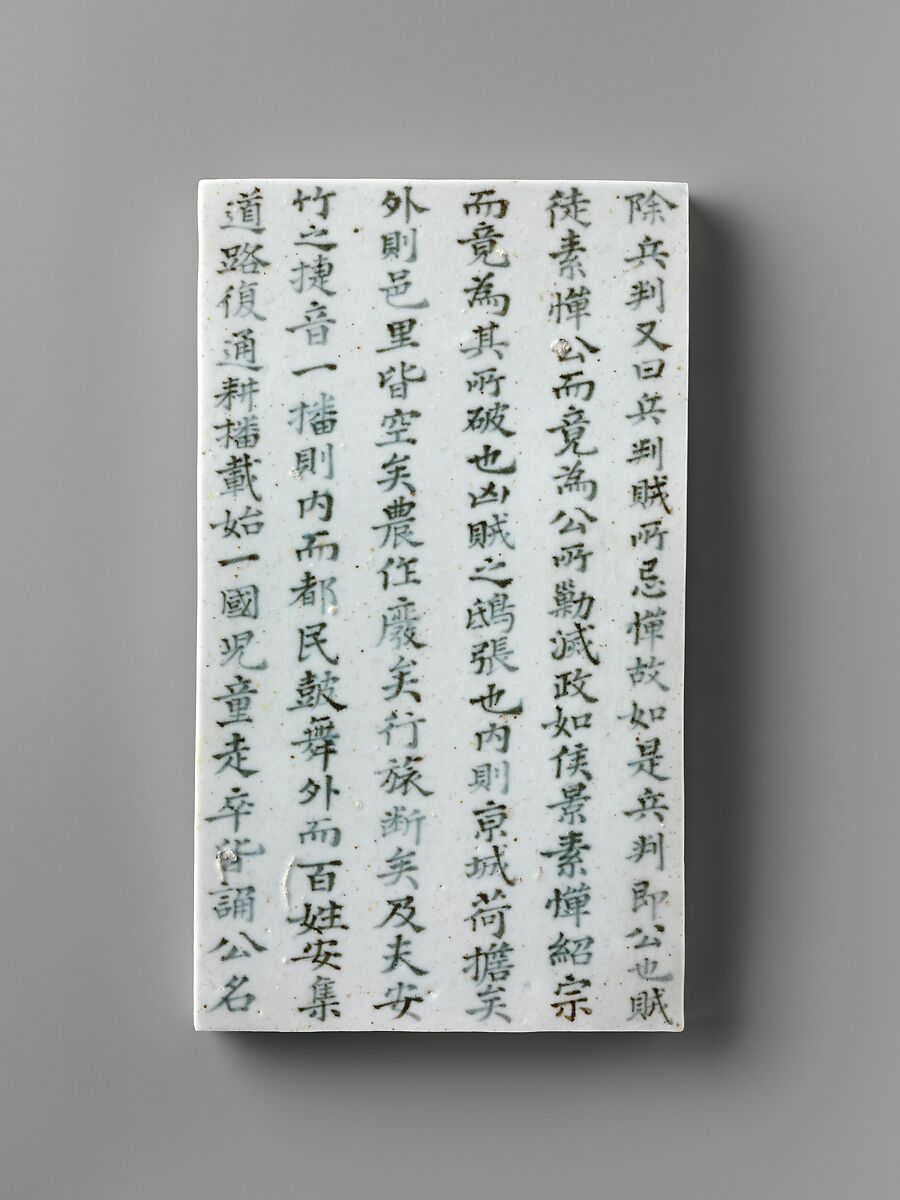 除兵判又曰兵判賊所忌憚故如是兵判即公也賊
徒素憚公而竟為公所勦滅政如侯景素憚紹宗
而竟為其所破也凶賊之鴟張也內則京城荷擔矣
外則邑里皆空矣農作廢矣行旅断矣及夫安
竹之捷音一播則内而都民鼓舞外而百姓安集
道路復通耕播載始一國児童走卒皆誦公名